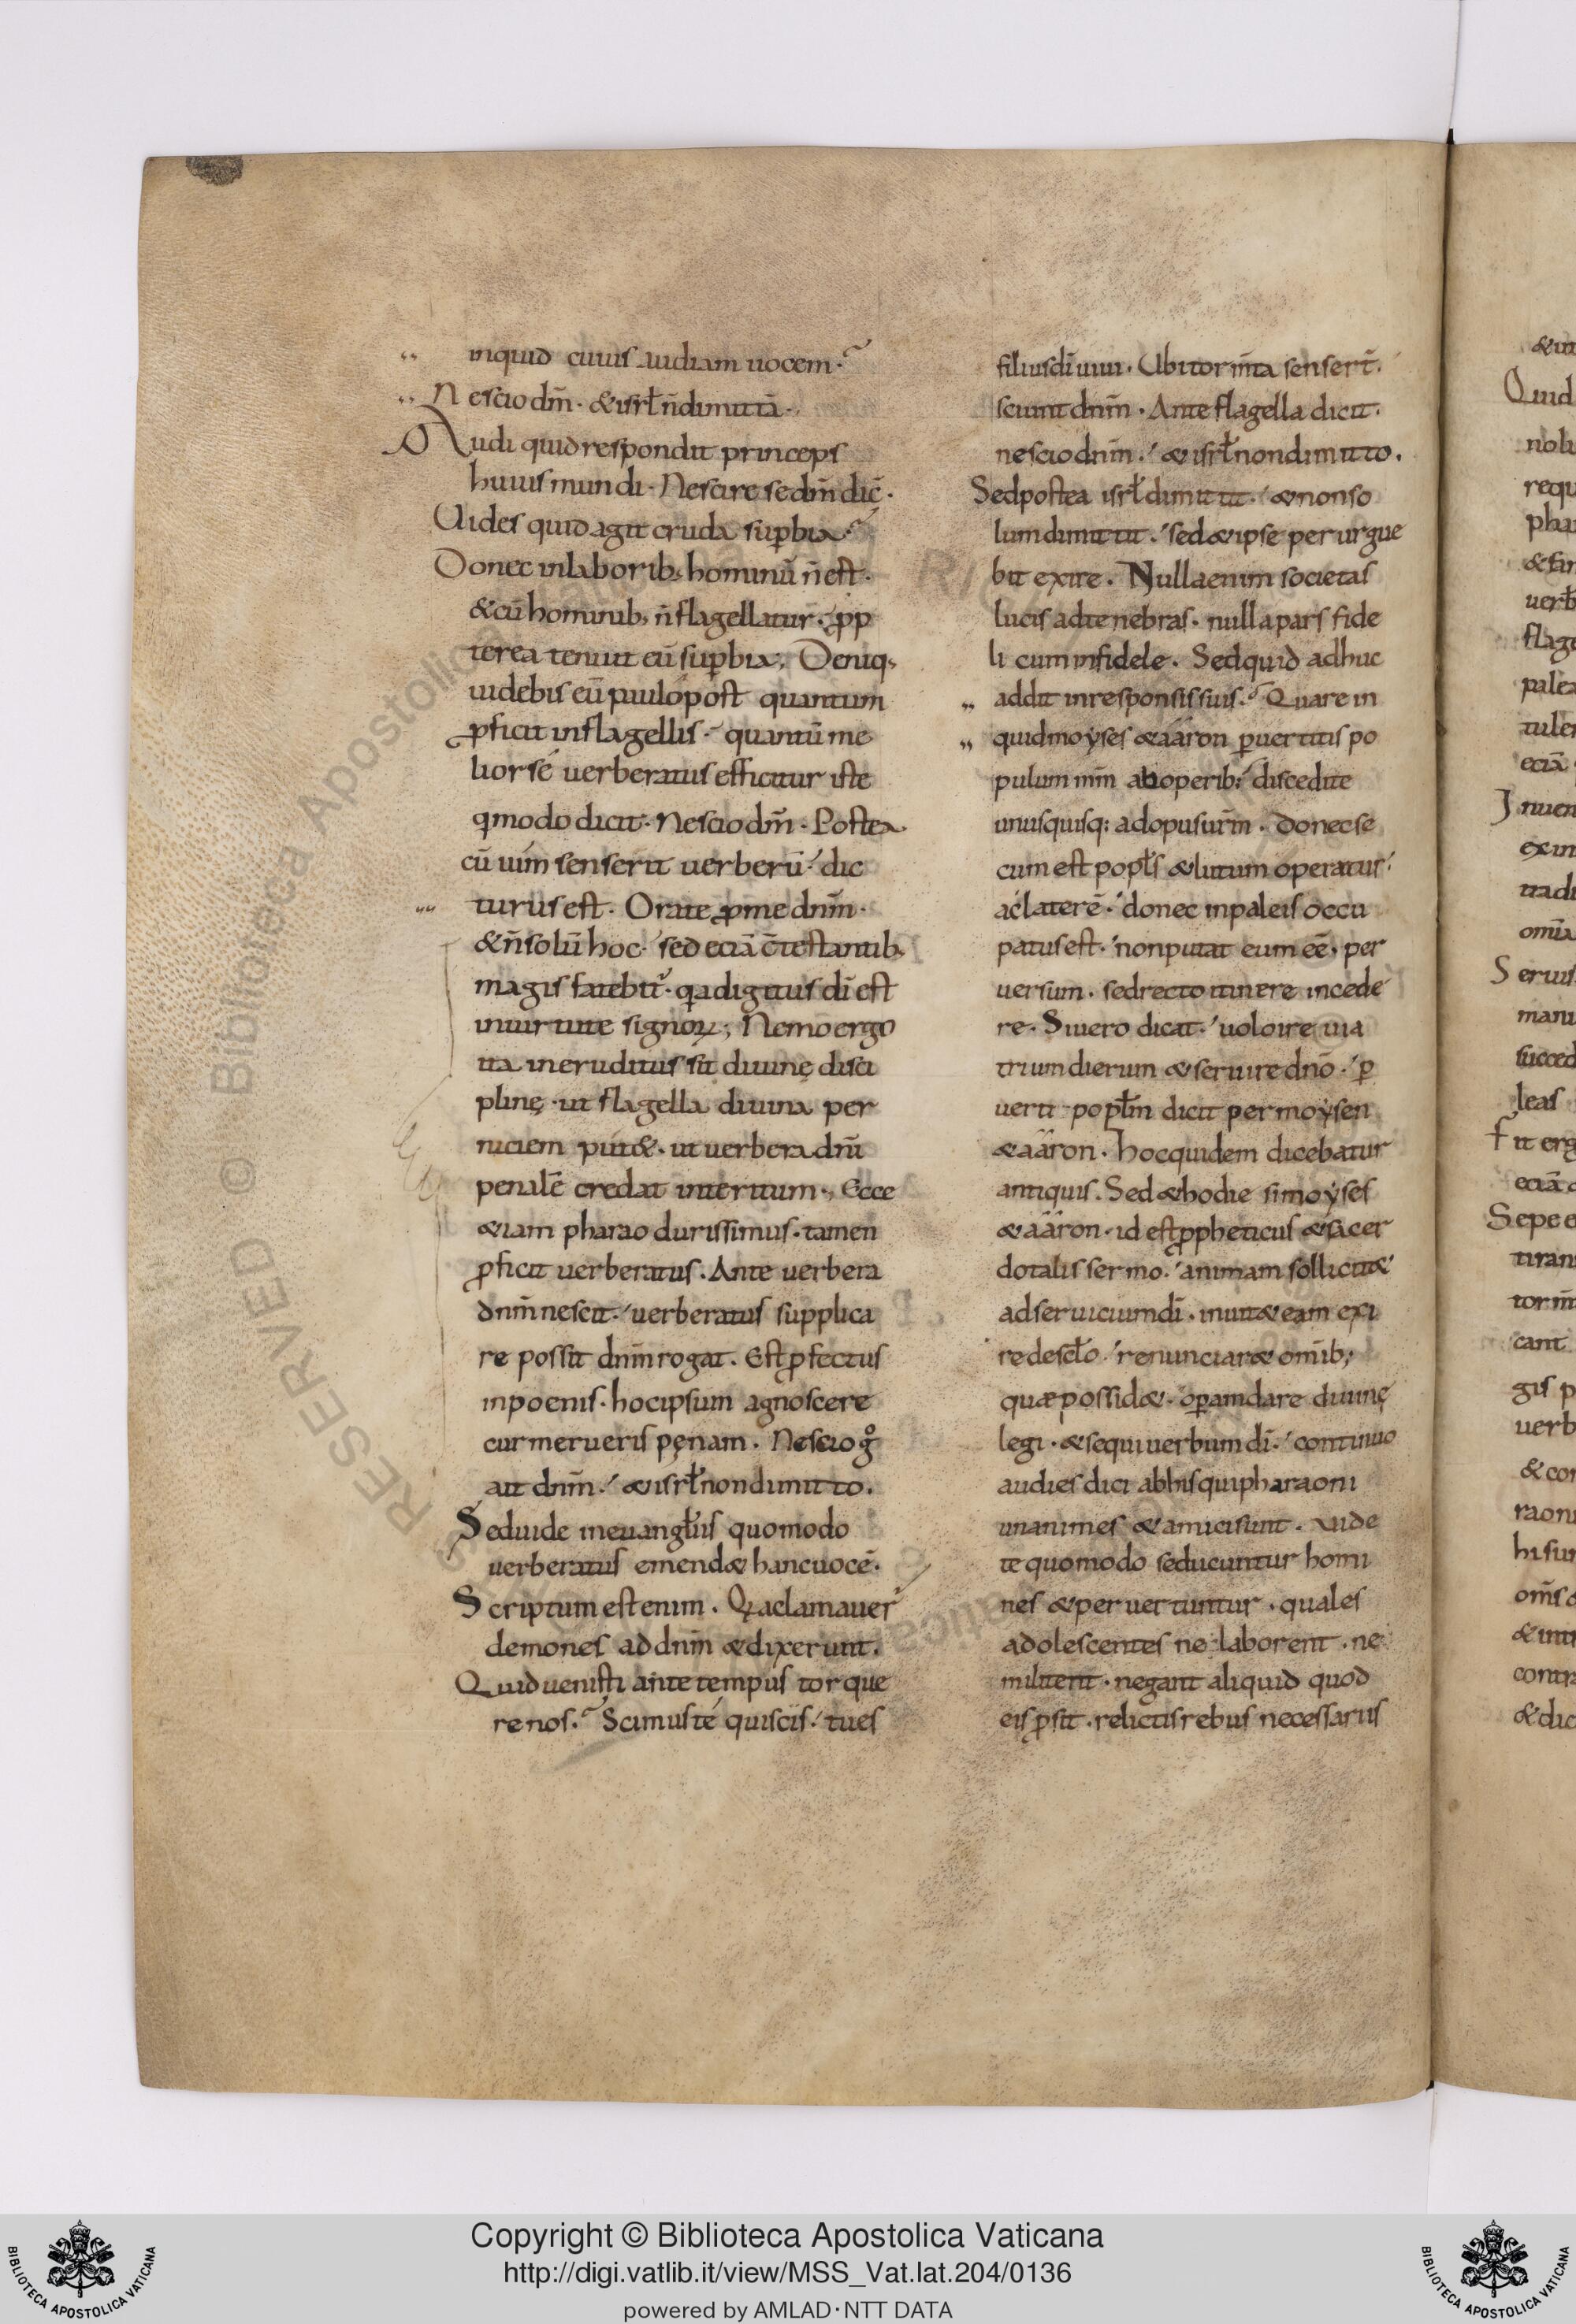 inquid cuius audiam uocem·
Nescio dm̄· & isrł n̄ dimittā·
Audi quid respondit princeps
huius mundi· Nescire se dm̄ dic̄·
Uides quid agit cruda sup̱bia·
Donec in laborib; hominū n̄ est·
& cū hominib; n̄ flagellatur̄· ꝓp
terea tenuit eū sup̱bia; Deniq;
uidebis eū paulo post quantum
ꝓficit in flagellis· quantū me
lior sé uerberatus efficitur iste
qmodo dicit· Nescio dm̄· Postea
cū uim senserit uerberū· dic
turus est· Orate ꝓ me dnm̄·
& n̄ solū hoc· sed eciā c̄testantib;
magis fatebit̄· qa digitus dī est
in uirtute signoꝝ; Nemo ergo
ita ineruditus sit diuinę disci
plinę· ut flagella diuina per
niciem put&· ut uerbera dnī
penalē credat interitum; Ecce
&iam pharao durissimus· tamen
ꝓficit uerberatus. Ante uerbera
dnm̄ nescit· uerberatus supplica
re possit dnm̄ rogat. Est ꝓfectus
in poenis· hoc ipsum agnoscere
cur merueris pęnam. Nescio gͦ
ait dnm̄· & isrł non dimitto.
Sed uide in euangłiis quomodo
uerberatus emend& hanc uocē·
Scriptum est enim. Qa clamauer̄
demones ad dnm̄ & dixerunt.
Quid uenisti ante tempus torque
re nos· Scimus té qui scis· tu es
filius dī uiui· Ubi torm̄ta senser̄t·
sciunt dnm̄· Ante flagella dicit·
nescio dnm̄· & isrł non dimitto.
Sed postea isrł dimittit· & non so
lum dimittit· sed & ipse perurgue
bit exire. Nulla enim societas
lucis ad tenebras· nulla pars fide
li cum infidele. Sed quid adhuc
addit in responsis suis· Quare in
quid moyses & ááron ꝑuertitis po
pulum mm̄ ab operib; discedite
unusquisq: ad opus ur̄m. Donec se
cum est popłs & lutum operatur·
ac laterē· donec in paleis occu
patus est· non putat eum eē, per
uersum. sed recto itinere incede
re. Si uero dicat· uolo ire uia
trium dierum & seruire dnō· ꝑ
uerti popłm dicit per moysen
& ááron· Hoc quidem dicebatur
antiquis. Sed & hodie si moyses
& ááron· id est ꝓpheticus & sacer
dotalis sermo· animam sollicit&
ad seruicium dī· inuit& eam exi
re de scło· renunciar& omīb;
quæ possid&· oꝑam dare diuinę
legi· & sequi uerbum dī· continuo
audies dici ab his qui pharaoni
unanimes & amici sunt. uide
te quomodo seducuntur homi
nes & peruertuntur· quales
adolescentes ne laborent· ne
militent· negant aliquid quod
eis ꝓsit· relictis rebus necessariis
Copyright © Biblioteca Apostolica Vaticana
http://digi.vatlib.it/view/MSS_Vat.lat.204/0136
powered by AMLAD·NTT DATA
BIBLIOTECA APOSTOLICA VATICANA
BIBLIOTECA APOSTOLICA VATICANA